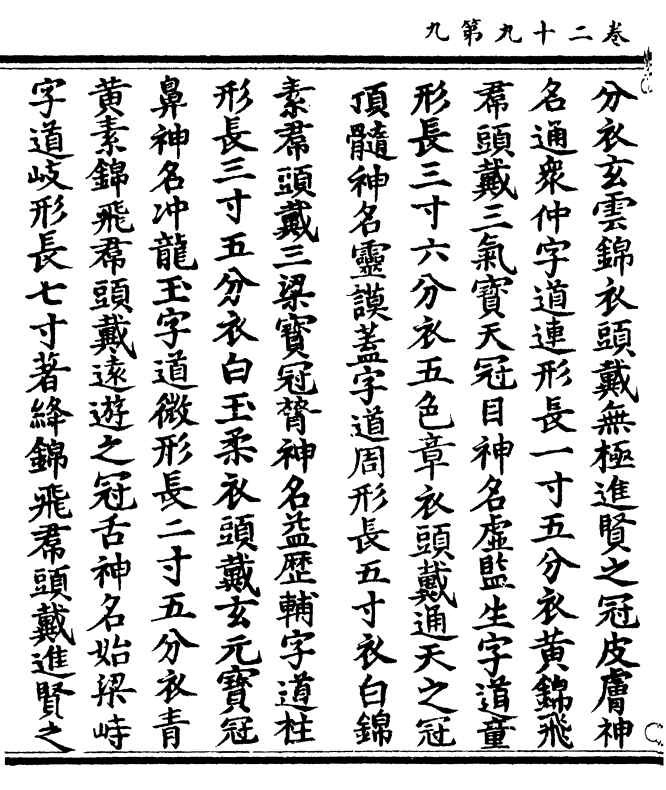 卷二十九第九
分衣玄雲錦衣頭戴無極進賢之冠皮膚神
名通衆仲字道連形長一寸五分衣黄錦飛
帬頭戴三氣寳天冠目神名虚監生字道童
形長三寸六分衣五色章衣頭戴通天之冠
頂髓神名靈謨蓋字道周形長五寸衣白錦
素帬頭戴三梁寳冠膂神名益歴輔字道柱
形長三寸五分衣白玉柔衣頭戴玄元寳冠
鼻神名冲龍玉字道微形長二寸五分衣青
黄素錦飛帬頭戴逺遊之冠舌神名始梁峙
字道岐形長七寸著絳錦飛帬頭戴進賢之